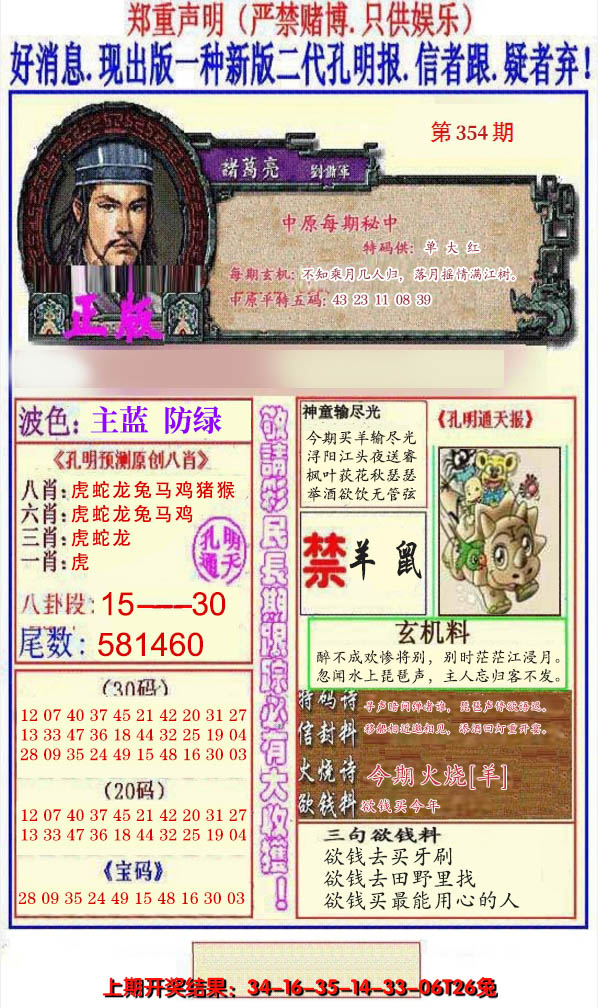 郑重声明（严禁赌博.只供娱乐）
好消息.现出版一种新版二代孔明报.信者跟.疑者弃！
第354期
諸葛亮 劉備軍
中原每期秘中
特码供：单大红
每期玄机：不知乘月几人归，落月摇情满江树。
中原平特五码：43 23 11 08 39
正版
波色：主蓝 防绿
《孔明预测原创八肖》
八肖：虎蛇龙兔马鸡猪猴
六肖：虎蛇龙兔马鸡
三肖：虎蛇龙
一肖：虎
孔明
通天
八卦段：15——30
尾数：581460
（30码）
12 07 40 37 45 21 42 20 31 27
13 33 47 36 18 44 32 25 19 04
28 09 35 24 49 15 48 16 30 03
（20码）
12 07 40 37 45 21 42 20 31 27
13 33 47 36 18 44 32 25 19 04
《宝码》
28 09 35 24 49 15 48 16 30 03
敬請彩民長期跟踪必有大收獲！
神童输尽光
今期买羊输尽光
浔阳江头夜送睿
枫叶荻花秋瑟瑟
举酒欲饮无管弦
《孔明通天报》
禁羊 鼠
玄机料
醉不成欢惨将别，别时茫茫江浸月。
忽闻水上琵琶声，主人忘归客不发。
特码诗 寻声暗问弹者谁，琵琶声停欲语迟。
信封料 移船相近邀相见，添酒回灯重开宴。
火烧诗 今期火烧[羊]
欲钱料 欲钱买今年
三句欲钱料
欲钱去买牙刷
欲钱去田野里找
欲钱买最能用心的人
上期开奖结果：34-16-35-14-33-06T26兔